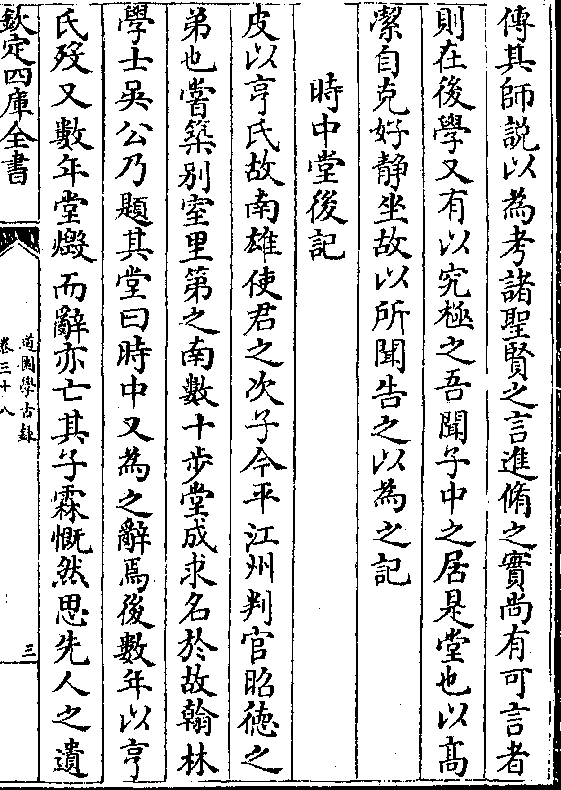 傳其師說以為考諸聖賢之言進脩之實尚有可言者
則在後學又有以究極之吾聞子中之居是堂也以髙
潔自克好静坐故以所聞告之以為之記
時中堂後記
皮以亨氏故南雄使君之次子今平江州判官昭徳之
弟也嘗築别室里第之南數十步堂成求名於故翰林
學士吳公乃題其堂曰時中又為之辭焉後數年以亨
氏歿又數年堂燬而辭亦亡其子霖慨然思先人之遺
欽定四庫全書
道園學古録
卷三十八
三